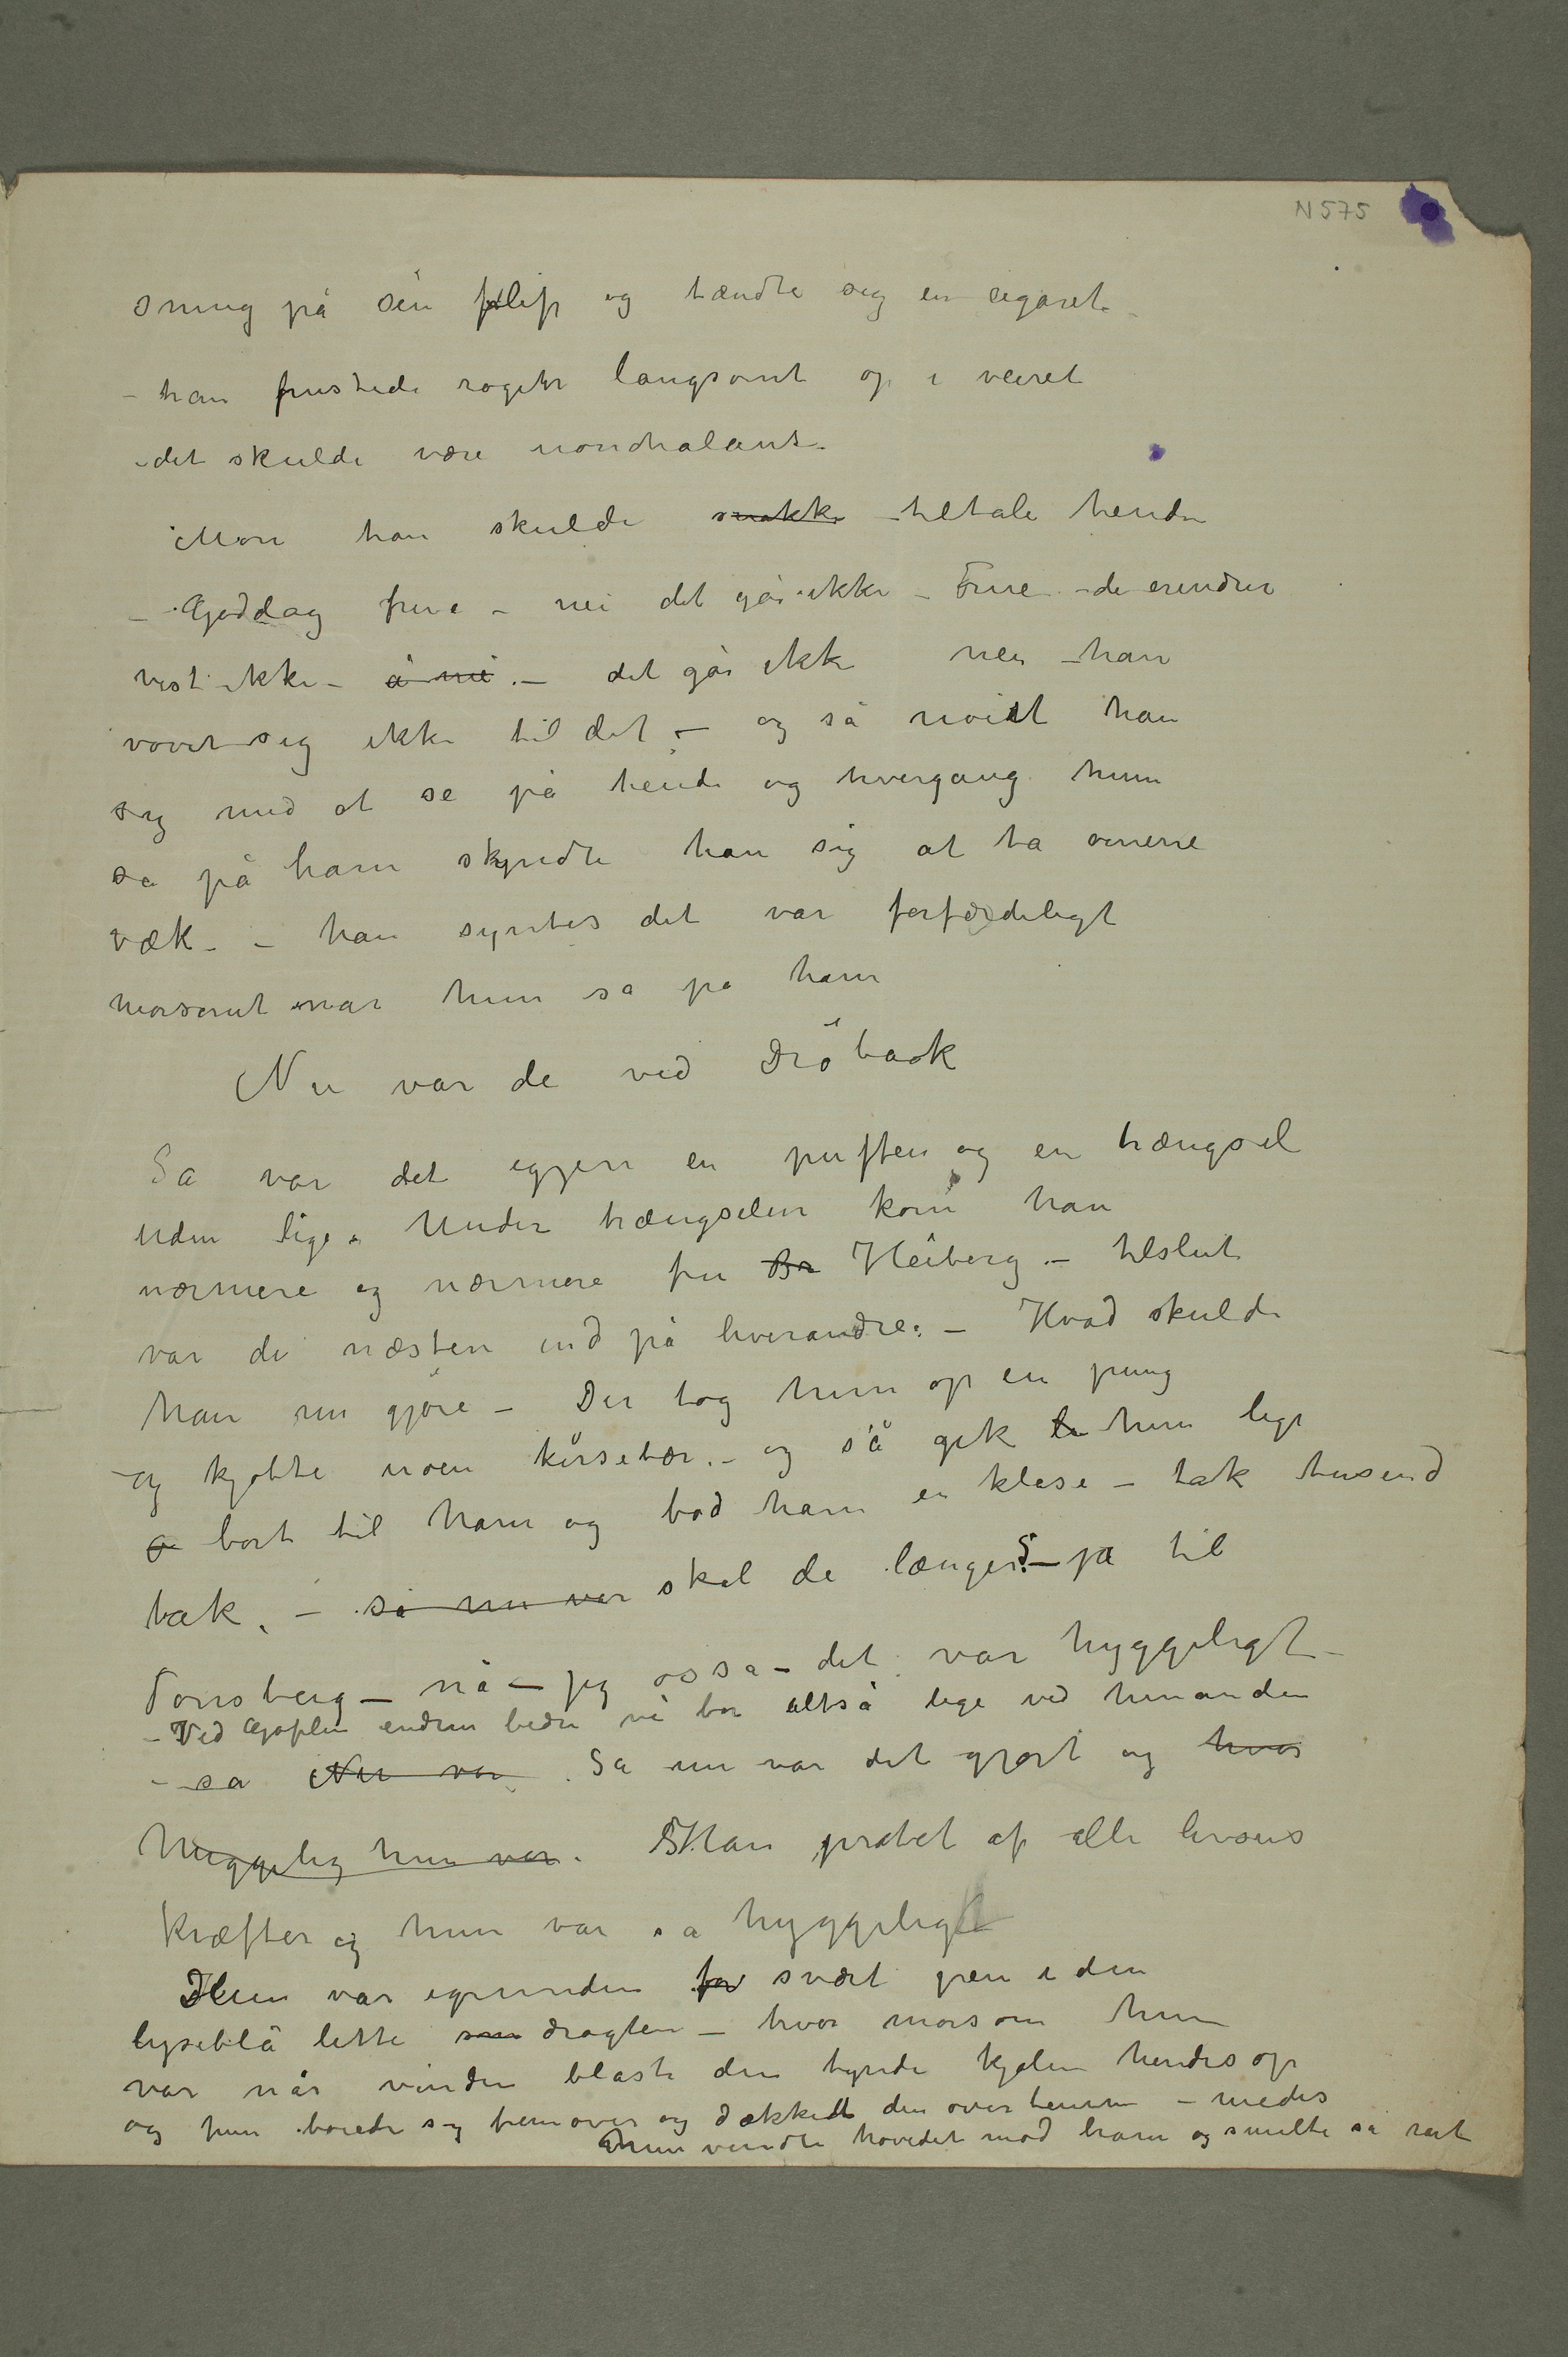 N 575
snug på sin flip og tændte sig en cigaret.
– han pustede røgen langsomt op i veiret
– det skulde være nonchalant.
Mon han skulde snakke tiltale hende
– Goddag frue – nei det går ikke – Frue – de erindrer
vist ikke – å nei – det går ikke nei – han
vover sig ikke til det – og så nøiet han
sig med at se på hende og hvergang hun
så på ham skyndte han sig at ta øinene
væk. – han syntes det var forfærdeligt
morsomt når hun så på ham
Nu var de ved Drøbak
Så var det igjen en puffen og en trængsel
uden lige. Under trængselen kom han
nærmere og nærmere fru Br Heiberg – tilslut
var de næsten ind på hverandre. – Hvad skulde
han nu gjøre – Der tog hun op en pung
og kjøbte noen kirsebær. – og så gik hun lige
o bort til ham og bød ham en klase – tak tusend
tak. – så nu var skal de længer? – ja til
Tønsberg – nå – jeg osså – det var hyggeligt –
– Ved Gjøplen endnu bedre vi bor altså lige ved hinanden
– så Nu var Så nu var det gjort og hvor
hyggelig hun var. Han pratet af alle livsens
kræfter og hun var så hyggelig
Hun var igrunden for svært pen i den
lyseblå lette som dragten – hvor morsom hun
var når vinden blåste den tynde kjolen hendes op
og hun bøiede sig fremover og dækket den over benene – medes
hun vendte hovedet mod ham og smilte så rart